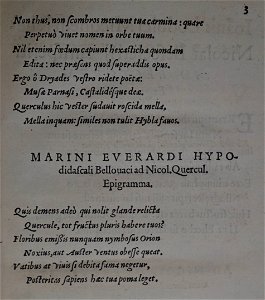 3
Non thus, non scombros metuunt tua carmina: quare
Perpetuò viuet nomen in orbe tuum.
Nil etenim fœdum capiunt hexasticha quondam
Edita: nec præsens quod superaddis opus.
Ergo ô Dryades vestro ridete poëtæ:
Musæ Parnasi, Castalidésque deæ.
Querculus hic vester sudauit roscida mella,
Mella inquam: similes non tulit Hybla fauos.
MARINI EVERARDI HYPO-
didascali Bellouaci ad Nicol. Quercul.
Epigramma.
Quis demens adeò qui nolit glande relicta
Quercule, tot fructus pluris habere tuos?
Floribus emissis nunquam nymbosus Orion
Noxius, aut Auster ventus obesse queat.
Vatibus at viuis si debita fama negetur,
Posteritas sapiens hæc tua poma leget.